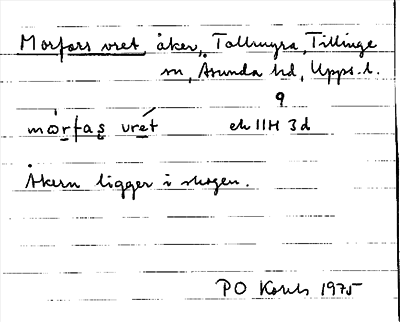 Morfars vret, åker, Tallmyra, Tillinge
sn, Åsunda hd, Upps. l.
9
mòrfas vrét ek 11H 3d
Åkern ligger i skogen.
PO 1975